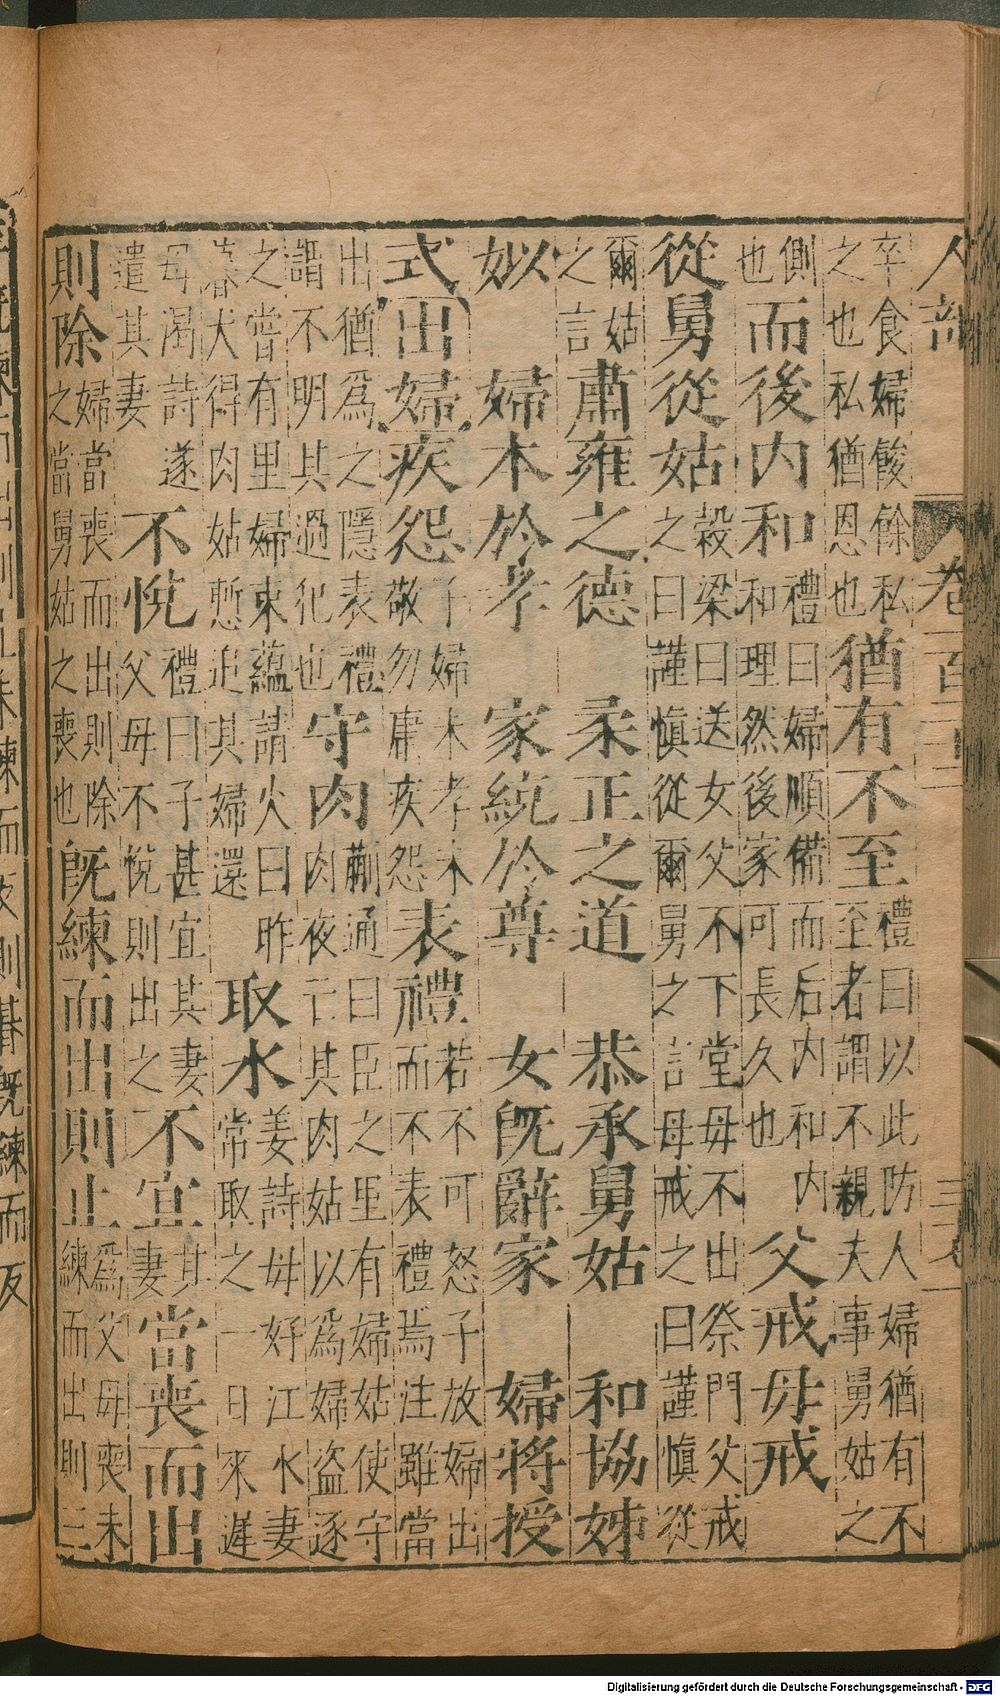 人部　卷一百二十二
卒食婦餕餘私
之也私猶恩也
猶有不至
禮曰以此防人婦猶有不
至者謂不親夫事舅姑之
側
也
而後內和
禮曰婦順備而后內和內
和理然後家可長久也
父戒母戒
從舅從姑
穀梁曰送女父不下堂母不出祭門父戒
之曰謹慎從爾舅之言母戒之曰謹慎從
爾姑
之言
肅雍之德　柔正之道　恭承舅姑　和協姊
姒　婦本於孝　家統於尊　女既辭家　婦將授
式　出婦　疾怨
子婦未孝未
敬勿庸疾怨
表禮
若不可怒子放婦出
而不表禮焉注雖當
出猶爲之隱表禮
謂不明其過犯也
守肉
蒯通曰臣之里有婦姑使守
肉夜亡其肉姑以爲婦盜逐
之嘗有里婦束蘊請火曰昨
暮犬得肉姑慙追其婦還
取水
姜詩母好江水妻
常取之一日來遲
母渴詩遂
遣其妻
不悅
禮曰子甚宜其妻
父母不悅則出之
不宜
其
妻
當喪而出
則除
婦當喪而出則除
之當舅姑之喪也
既練而出則止
爲父母喪未
練而出則三
未練而反則朞既練而反
Digitalisierung gefördert durch die Deutsche Forschungsgemeinschaft - DFG